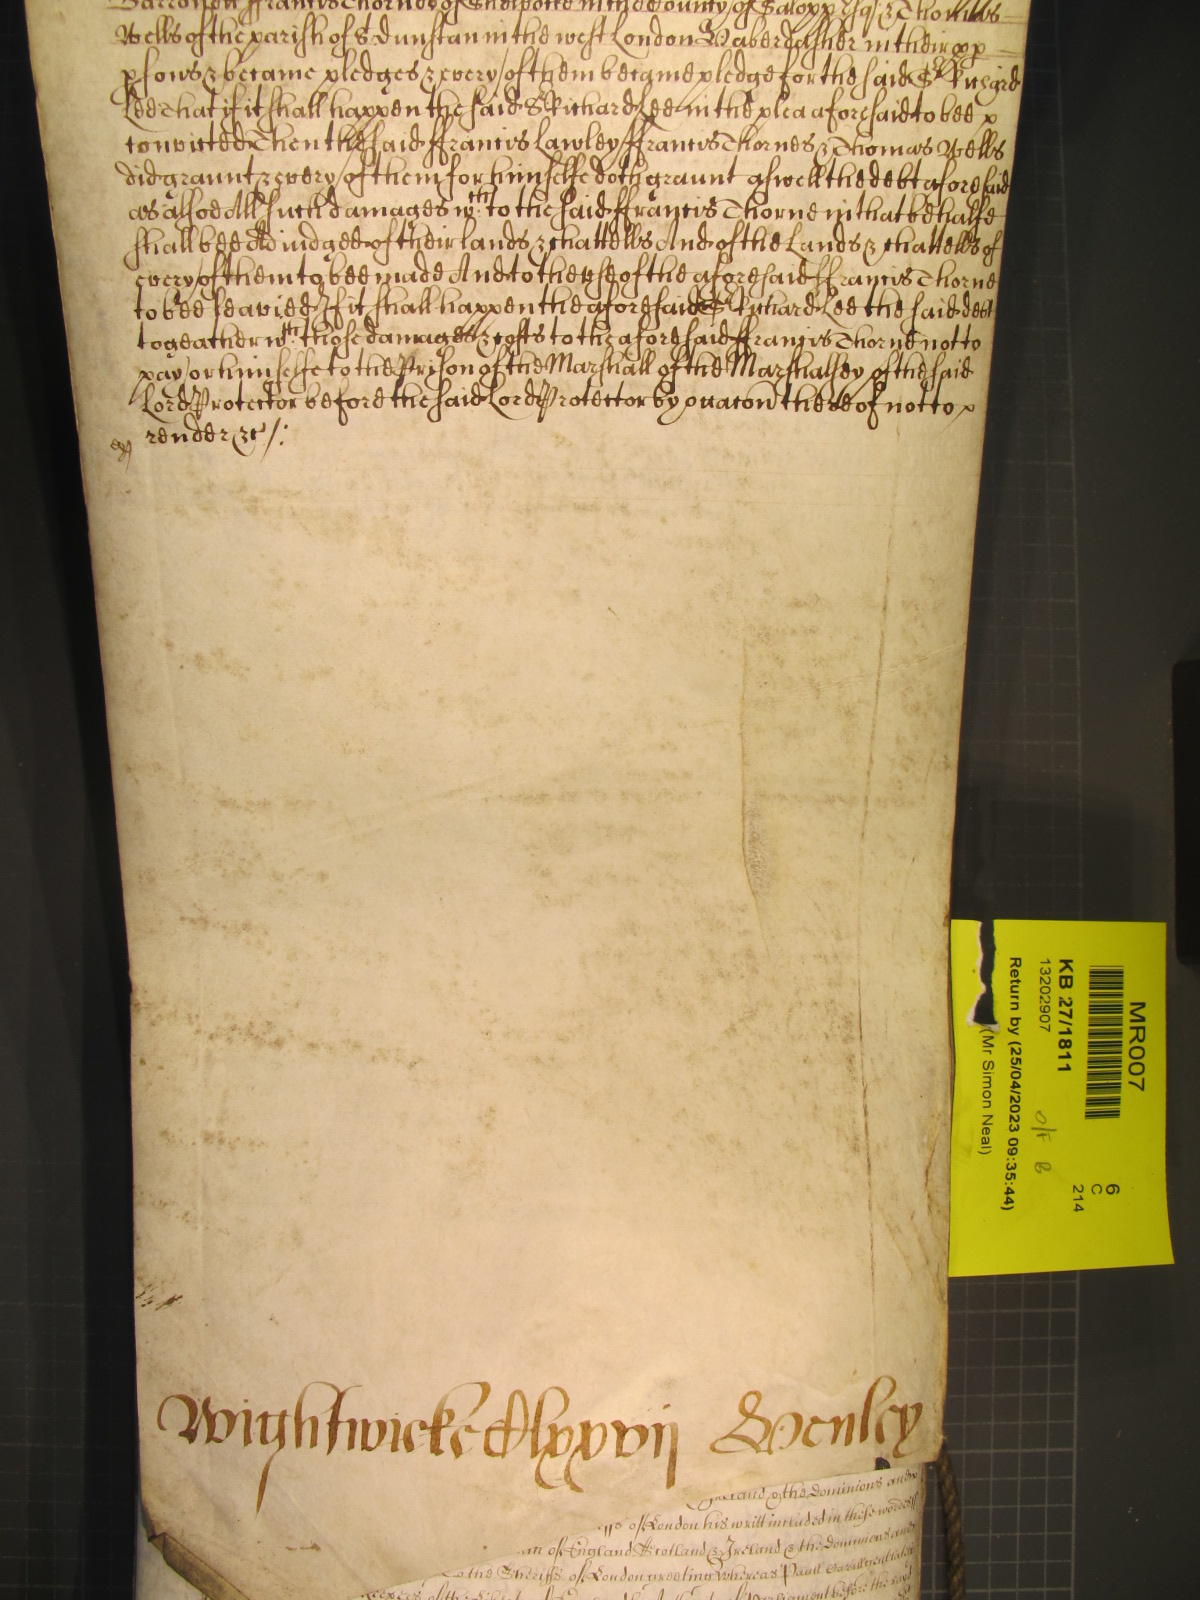 Barronett ffrancis Thornes of Shelvocke in the County of Salopp Esqr & Thomas
Wells of the parish of S Dunstan in the west London Haberdasher in their pp
psons & became pledges & every of them became pledge for the said Sr Richard
Lee That if it shall happen the said Sr Richard Lee in the plea aforesaid to bee
convicted Then the said ffrancis Lawley ffrancis Thornes & Thomas Wells
did graunt & every of them for himselfe doth graunt aswell the debt aforesaid
as alsoe All such damages wth to the said ffrancis Thorne in that behalfe
shall bee Adiudged of their lands & chattells And of the Lands & chattells of
every of them to bee made And to the use of the aforesaid ffrancis Thorne
to bee leavied If it shall happen the aforesaid Sr Richard Lee the said debt
togeather wth those damages & costs to the aforesaid ffrancis Thorne not to
pay or himselfe to the Prison of the Marshall of the Marshalsey of the said
Lord Protector before the said Lord Protector by that occasion thereof not to
render &c /:
Wightwicke Clxxvij Henley
Ireland & the Dominions
of London his writt included in these words
of England Scotland & Ireland & the Dominions and
To the Sheriffs of London greeting Whereas Paull
MR007
KB 27/1811
13202907
Return by (25/04/2023 09:35:44)
(Mr Simon Neal)
6
C
214
O/F B